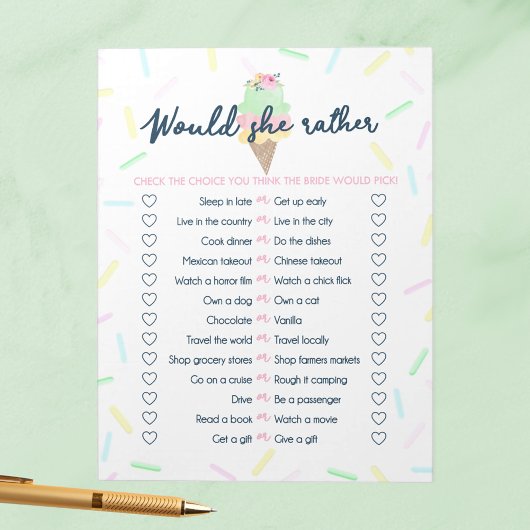 Would she rather
CHECK THE CHOICE YOU THINK THE BRIDE WOULD PICK!
Sleep in late or Get up early
Live in the country or Live in the city
Cook dinner or Do the dishes
Mexican takeout or Chinese takeout
Watch a horror film or Watch a chick flick
Own a dog or Own a cat
Chocolate or Vanilla
Travel the world or Travel locally
Shop grocery stores or Shop farmers markets
Go on a cruise or Rough it camping
Drive or Be a passenger
Read a book or Watch a movie
Get a gift or Give a gift